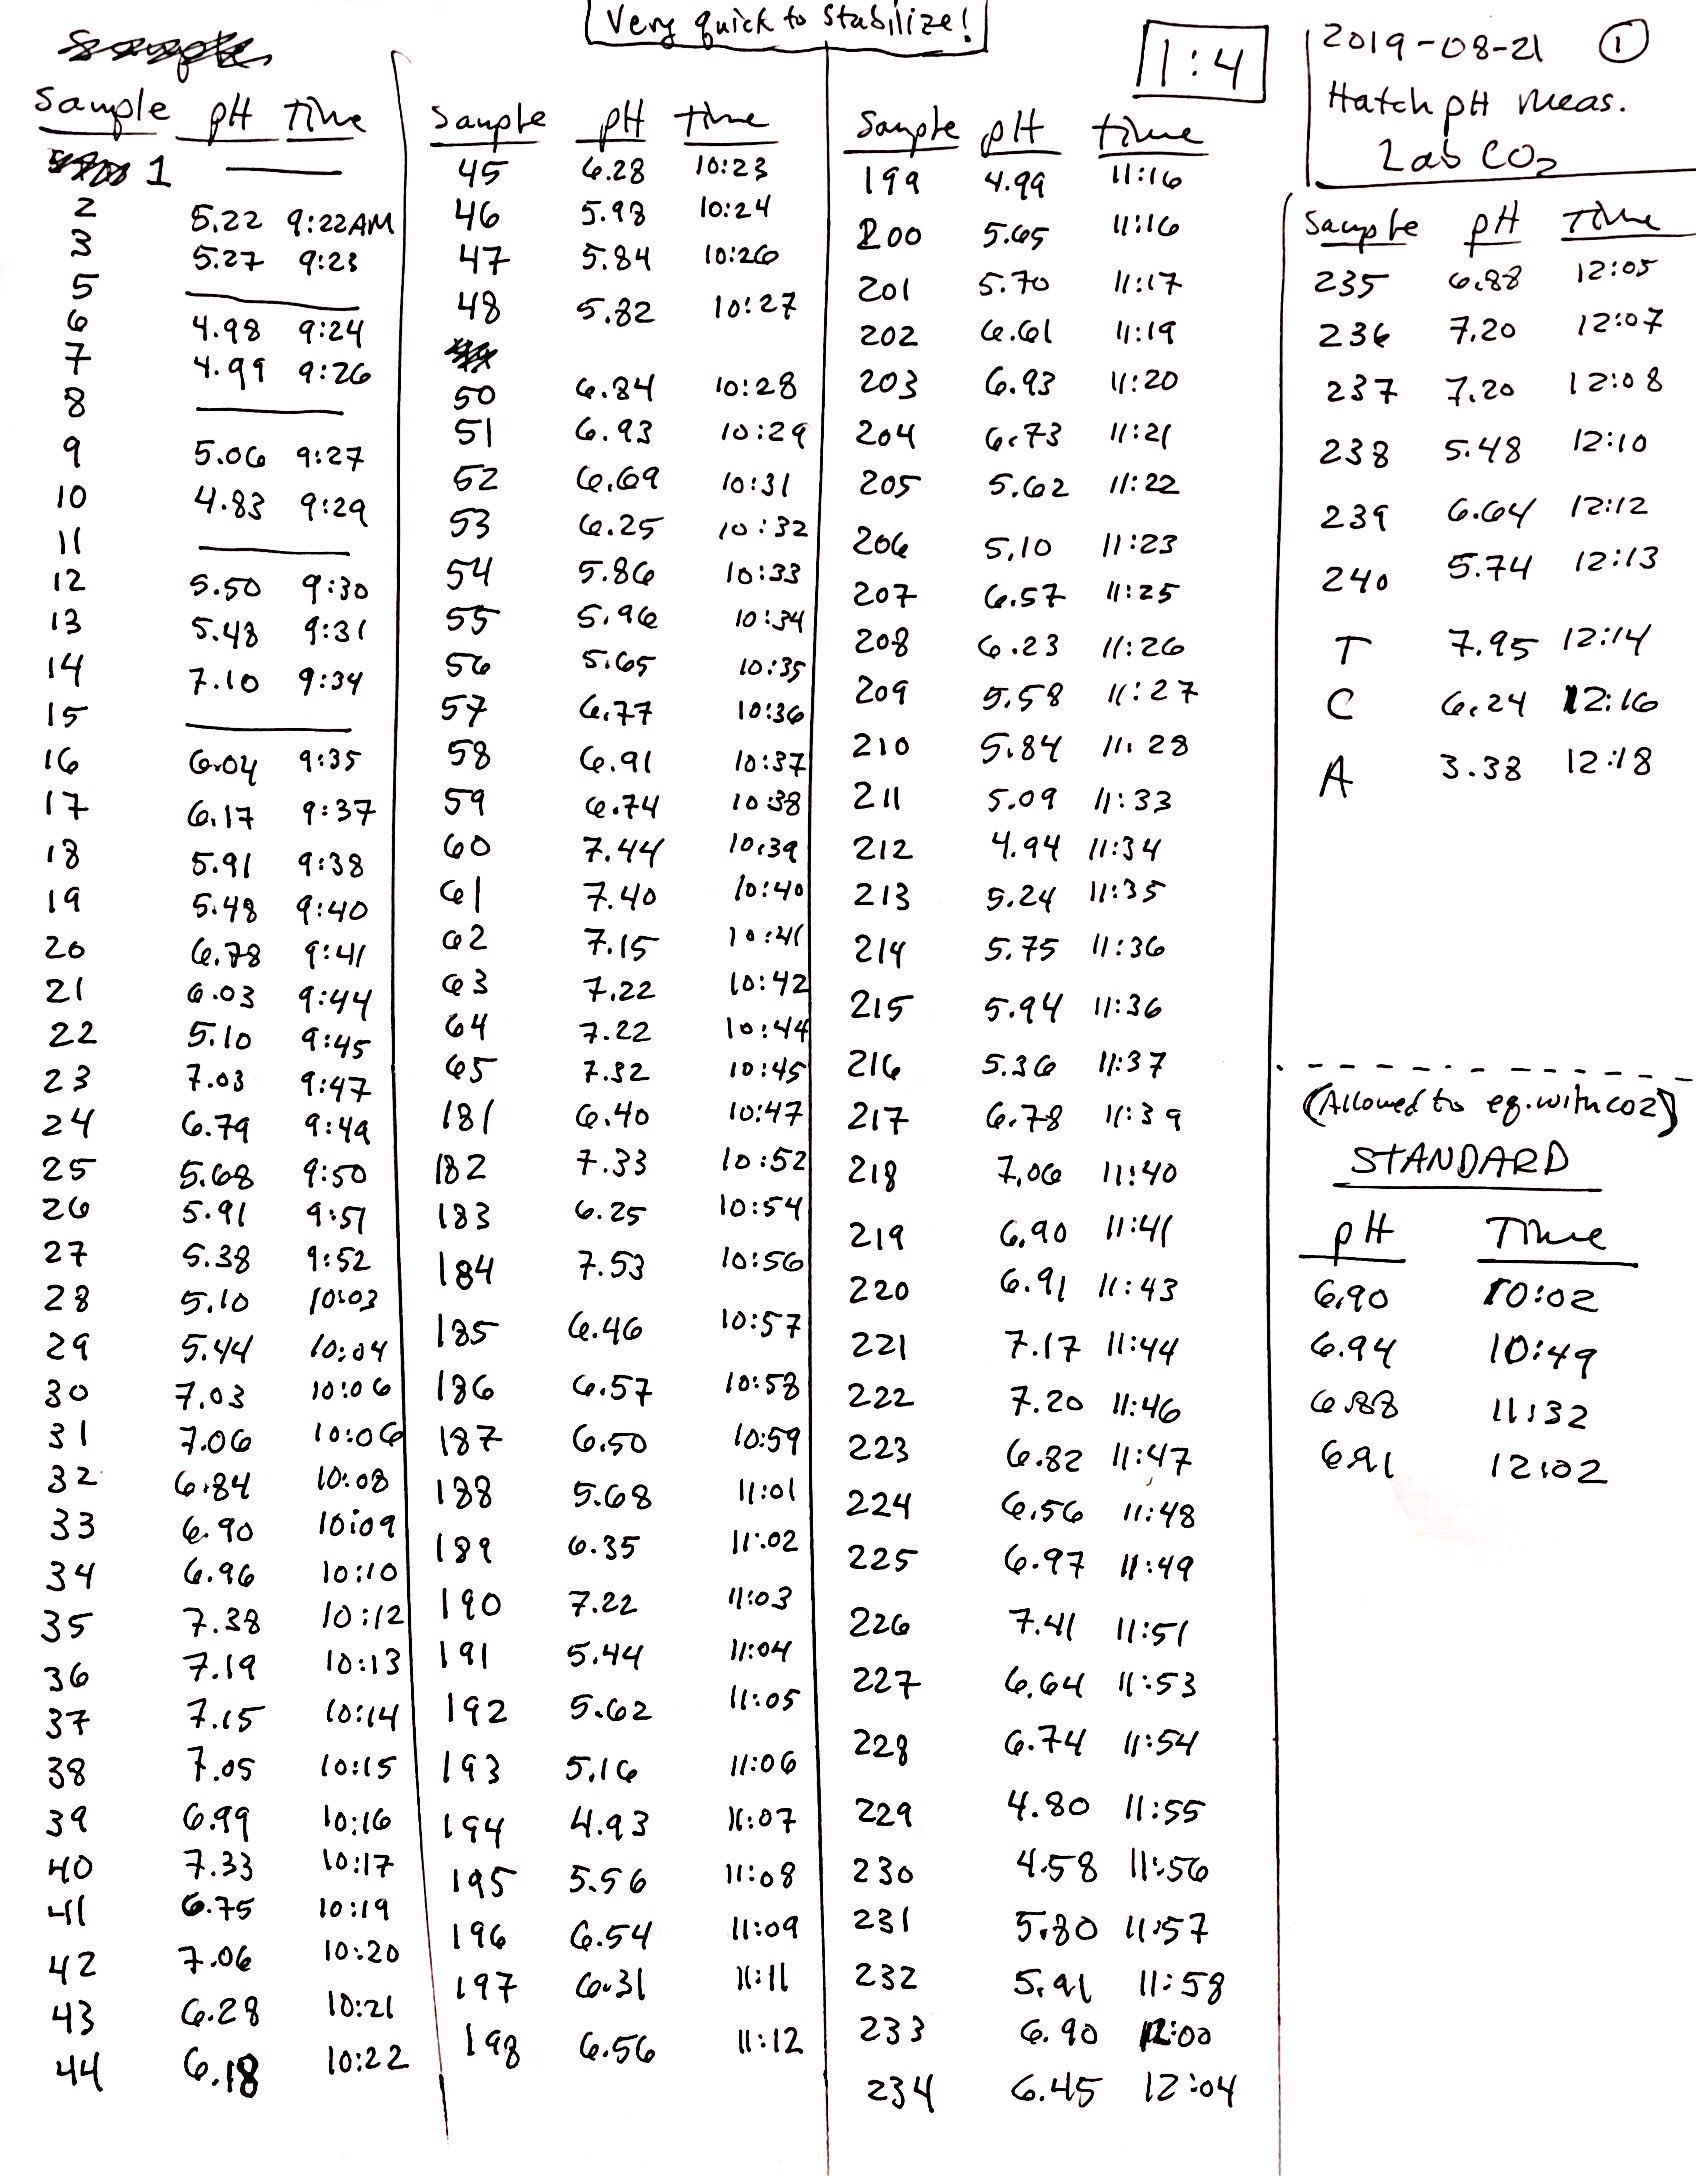 Very quick to stabilize!
1:4
2019-08-21 ①
Hatch pH meas.
Lab CO2
Sample pH Time
1 —
2 5.22 9:22AM
3 5.27 9:23
5 —
6 4.98 9:24
7 4.99 9:26
8 —
9 5.06 9:27
10 4.83 9:29
11 —
12 5.50 9:30
13 5.48 9:31
14 7.10 9:34
15 —
16 6.04 9:35
17 6.17 9:37
18 5.91 9:38
19 5.48 9:40
20 6.78 9:41
21 6.03 9:44
22 5.10 9:45
23 7.03 9:47
24 6.79 9:49
25 5.68 9:50
26 5.91 9:51
27 5.38 9:52
28 5.10 10:03
29 5.44 10:04
30 7.03 10:06
31 7.06 10:06
32 6.84 10:08
33 6.90 10:09
34 6.96 10:10
35 7.38 10:12
36 7.19 10:13
37 7.15 10:14
38 7.05 10:15
39 6.99 10:16
40 7.33 10:17
41 6.75 10:19
42 7.06 10:20
43 6.28 10:21
44 6.18 10:22
Sample pH Time
45 6.28 10:23
46 5.98 10:24
47 5.84 10:26
48 5.82 10:27
50 6.84 10:28
51 6.93 10:29
52 6.69 10:31
53 6.25 10:32
54 5.86 10:33
55 5.96 10:34
56 5.65 10:35
57 6.77 10:36
58 6.91 10:37
59 6.74 10:38
60 7.44 10:39
61 7.40 10:40
62 7.15 10:41
63 7.22 10:42
64 7.22 10:44
65 7.32 10:45
181 6.40 10:47
182 7.33 10:52
183 6.25 10:54
184 7.53 10:56
185 6.46 10:57
186 6.57 10:58
187 6.50 10:59
188 5.68 11:01
189 6.35 11:02
190 7.22 11:03
191 5.44 11:04
192 5.62 11:05
193 5.16 11:06
194 4.93 11:07
195 5.56 11:08
196 6.54 11:09
197 6.31 11:11
198 6.56 11:12
Sample pH time
199 4.99 11:16
200 5.65 11:16
201 5.70 11:17
202 6.61 11:19
203 6.93 11:20
204 6.73 11:21
205 5.62 11:22
206 5.10 11:23
207 6.57 11:25
208 6.23 11:26
209 5.58 11:27
210 5.84 11:28
211 5.09 11:33
212 4.94 11:34
213 5.24 11:35
214 5.75 11:36
215 5.94 11:36
216 5.36 11:37
217 6.78 11:39
218 7.06 11:40
219 6.90 11:41
220 6.91 11:43
221 7.17 11:44
222 7.20 11:46
223 6.82 11:47
224 6.56 11:48
225 6.97 11:49
226 7.41 11:51
227 6.64 11:53
228 6.74 11:54
229 4.80 11:55
230 4.58 11:56
231 5.80 11:57
232 5.91 11:58
233 6.90 12:00
234 6.45 12:04
Sample pH Time
235 6.88 12:05
236 7.20 12:07
237 7.20 12:08
238 5.48 12:10
239 6.64 12:12
240 5.74 12:13
T 7.95 12:14
C 6.24 12:16
A 3.38 12:18
(Allowed to eq. with CO2)
STANDARD
pH Time
6.90 10:02
6.94 10:49
6.88 11:32
6.91 12:02